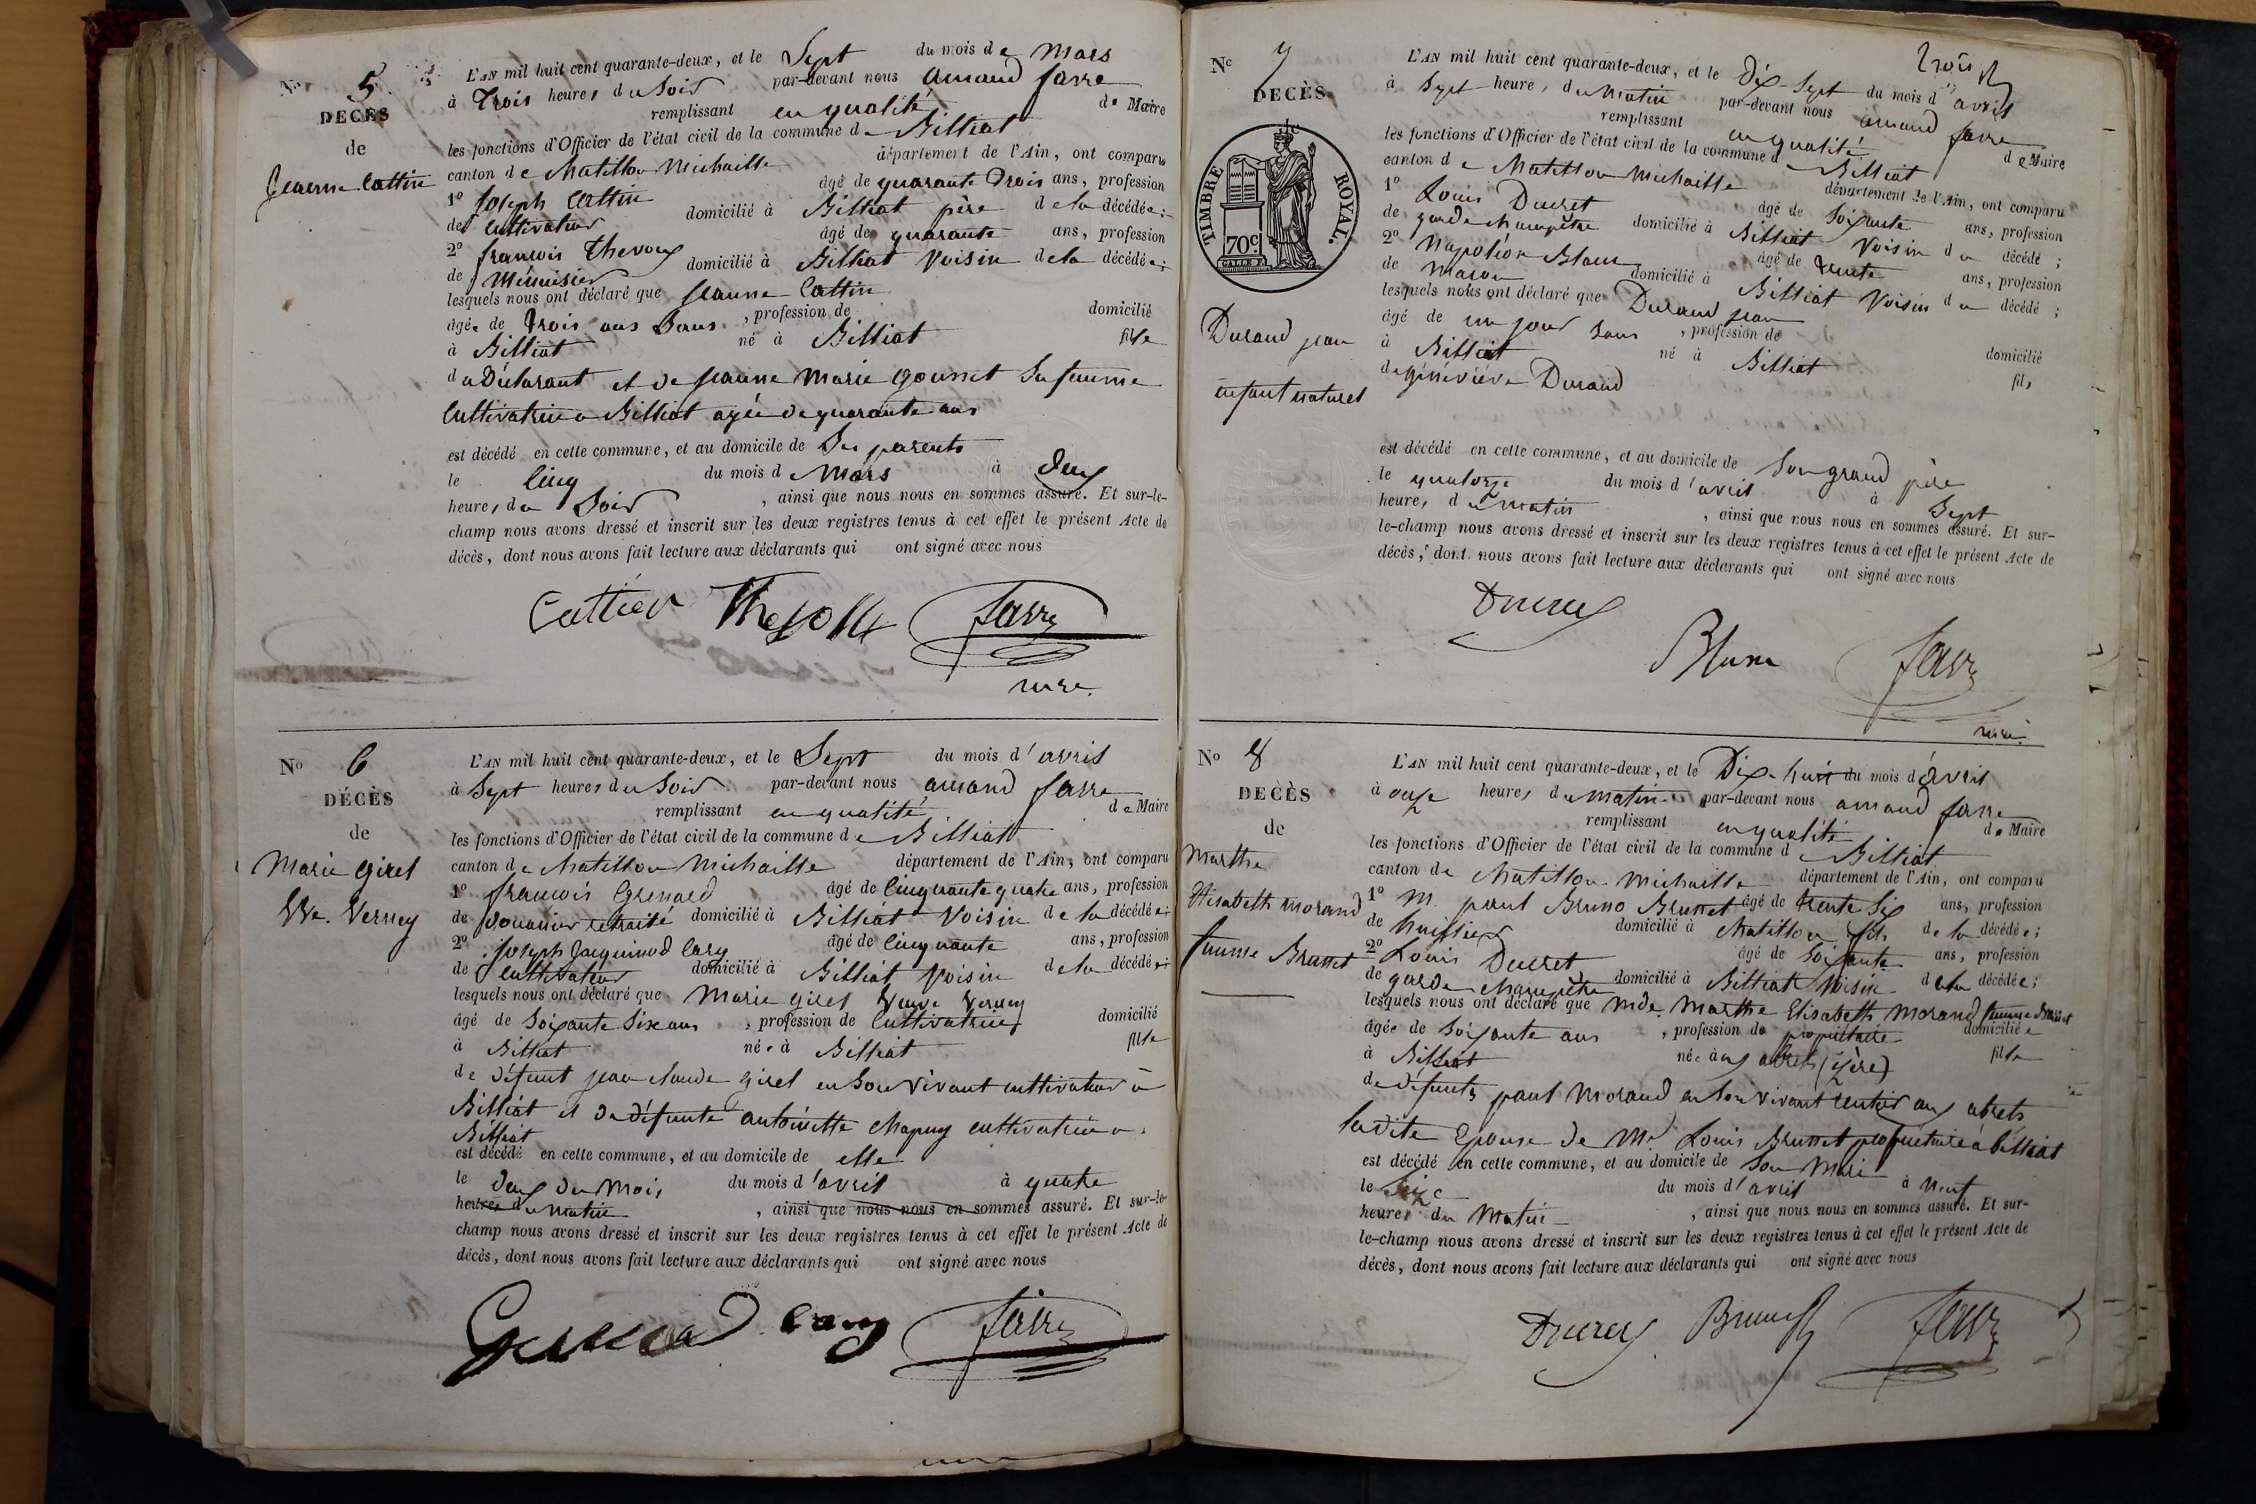 N° 5
DÉCÈS
de
Jeanne Cattin
L'AN mil huit cent quarante-deux, et le Sept du mois de Mars
à Trois heures du Soir par-devant nous amand favre
remplissant en qualité de Maire
les fonctions d'Officier de l'état civil de la commune de Billiat
canton de Chatillon Michaille département de l'Ain, ont comparu
1° Joseph Cattin âgé de quarante Trois ans, profession
de Cultivateur domicilié à Billiat père de la décédée;
2° françois Thevoux âgé de quarante ans, profession
de Menuisier domicilié à Billiat Voisin de la décédée;
lesquels nous ont déclaré que Jeanne Cattin
âgée de Trois ans Sans, profession de domicilié
à Billiat né à Billiat fille
du Déclarant et de Jeanne Marie gounet Sa femme
Cultivatrice a Billiat agée de quarante ans
est décédé en cette commune, et au domicile de Ses parents
le Cinq du mois de Mars à deux
heures du Soir, ainsi que nous nous en sommes assuré. Et sur-le-
champ nous avons dressé et inscrit sur les deux registres tenus à cet effet le présent Acte de
décès, dont nous avons fait lecture aux déclarants qui ont signé avec nous
favre
maire
N° 6
DÉCÈS
de
Marie girel
Vve. Verney
L'AN mil huit cent quarante-deux, et le Sept du mois d'avril
à Sept heures du Soir par-devant nous amand favre
remplissant en qualité de Maire
les fonctions d'Officier de l'état civil de la commune de Billiat
canton de Chatillon Michaille département de l'Ain, ont comparu
1° françois Grenard âgé de Cinquante quatre ans, profession
de Douanier retraité domicilié à Billiat Voisin de la décédée;
2° Joseph Jacquinod Cary âgé de Cinquante ans, profession
de Cultivateur domicilié à Billiat Voisin de la décédée;
lesquels nous ont déclaré que Marie girel Veuve Verney
âgé de Soixante Six ans, profession de Cultivatrice domicilié
à Billiat née à Billiat fille
de défunt jean claude girel en Son Vivant cultivateur à
Billiat et de défunte antoinette chapuy cultivatrice a
Billiat
est décédé en cette commune, et au domicile de elle
le deux du Mois du mois d'avril à quatre
heures du matin, ainsi que nous nous en sommes assuré. Et sur-le-
champ nous avons dressé et inscrit sur les deux registres tenus à cet effet le présent Acte de
décès, dont nous avons fait lecture aux déclarants qui ont signé avec nous
Grenard Cary favre
Trois
N° 7
DÉCÈS
de
TIMBRE ROYAL.
70c
Durand jean
enfant naturel
L'AN mil huit cent quarante-deux, et le Dix-Sept du mois d'avril
à Sept heures du Matin par-devant nous amand favre
remplissant en qualité de Maire
les fonctions d'Officier de l'état civil de la commune de Billiat
canton de Chatillon Michaille département de l'Ain, ont comparu
1° Louis Ducret âgé de Soixante ans, profession
de garde champêtre domicilié à Billiat Voisin du décédé;
2° Napoléon Blanc âgé de trente ans, profession
de Maçon domicilié à Billiat Voisin du décédé;
lesquels nous ont déclaré que Durand jean
âgé de un jour Sans, profession de domicilié
à Billiat né à Billiat fils
de géneviève Durand
est décédé en cette commune, et au domicile de Son grand père
le quatorze du mois d'avril à Sept
heures du matin, ainsi que nous nous en sommes assuré. Et sur-
le-champ nous avons dressé et inscrit sur les deux registres tenus à cet effet le présent Acte de
décès, dont nous avons fait lecture aux déclarants qui ont signé avec nous
Ducret
Blanc favre
maire
N° 8
DÉCÈS
de
Marthe
Elisabeth Morand
femme Brunet
L'AN mil huit cent quarante-deux, et le Dix-huit du mois d'avril
à onze heures du matin par-devant nous amand favre
remplissant en qualité de Maire
les fonctions d'Officier de l'état civil de la commune de Billiat
canton de Chatillon-Michaille département de l'Ain, ont comparu
1° M. paul Bruno Brunet âgé de trente Six ans, profession
de huissier domicilié à Chatillon fils de la décédée;
2° Louis Ducret âgé de Soixante ans, profession
de garde champêtre domicilié à Billiat Voisin de la décédée;
lesquels nous ont déclaré que Mde. Marthe Elisabeth Morand femme Brunet
âgée de Soixante ans, profession de propriétaire domiciliée
à Billiat née aux abrets (isère) fille
de défunt paul Morand en Son vivant rentier aux abrets
ladite Epouse de Mr Louis Brunet propriétaire à Billiat
est décédé en cette commune, et au domicile de Son Mari
le Seize du mois d'avril à Neuf
heures du Matin, ainsi que nous nous en sommes assuré. Et sur-
le-champ nous avons dressé et inscrit sur les deux registres tenus à cet effet le présent Acte de
décès, dont nous avons fait lecture aux déclarants qui ont signé avec nous
Ducret Brunet favre